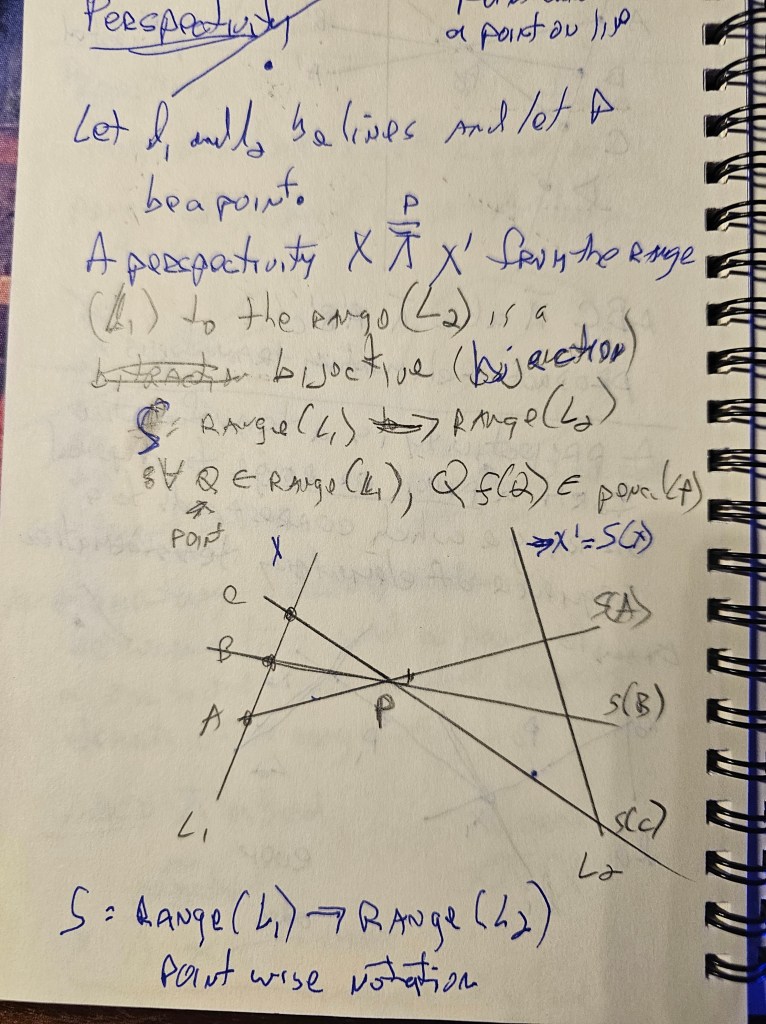 Perspectivity
a point on line
Let l₁ and l₂ be lines and let P
be a point.
P
A perspectivity X ⩞ X' from the Range
(L₁) to the range (L₂) is a
bijective (bijection)
S: Range(L₁) → Range(L₂)
∀ Q ∈ Range(L₁), Q f(Q) ∈ pencil(P)
Point
X
→X' = S(X)
C
S(A)
B
A
P
S(B)
L₁
S(C)
L₂
S = Range(L₁) → Range(L₂)
Point wise notation